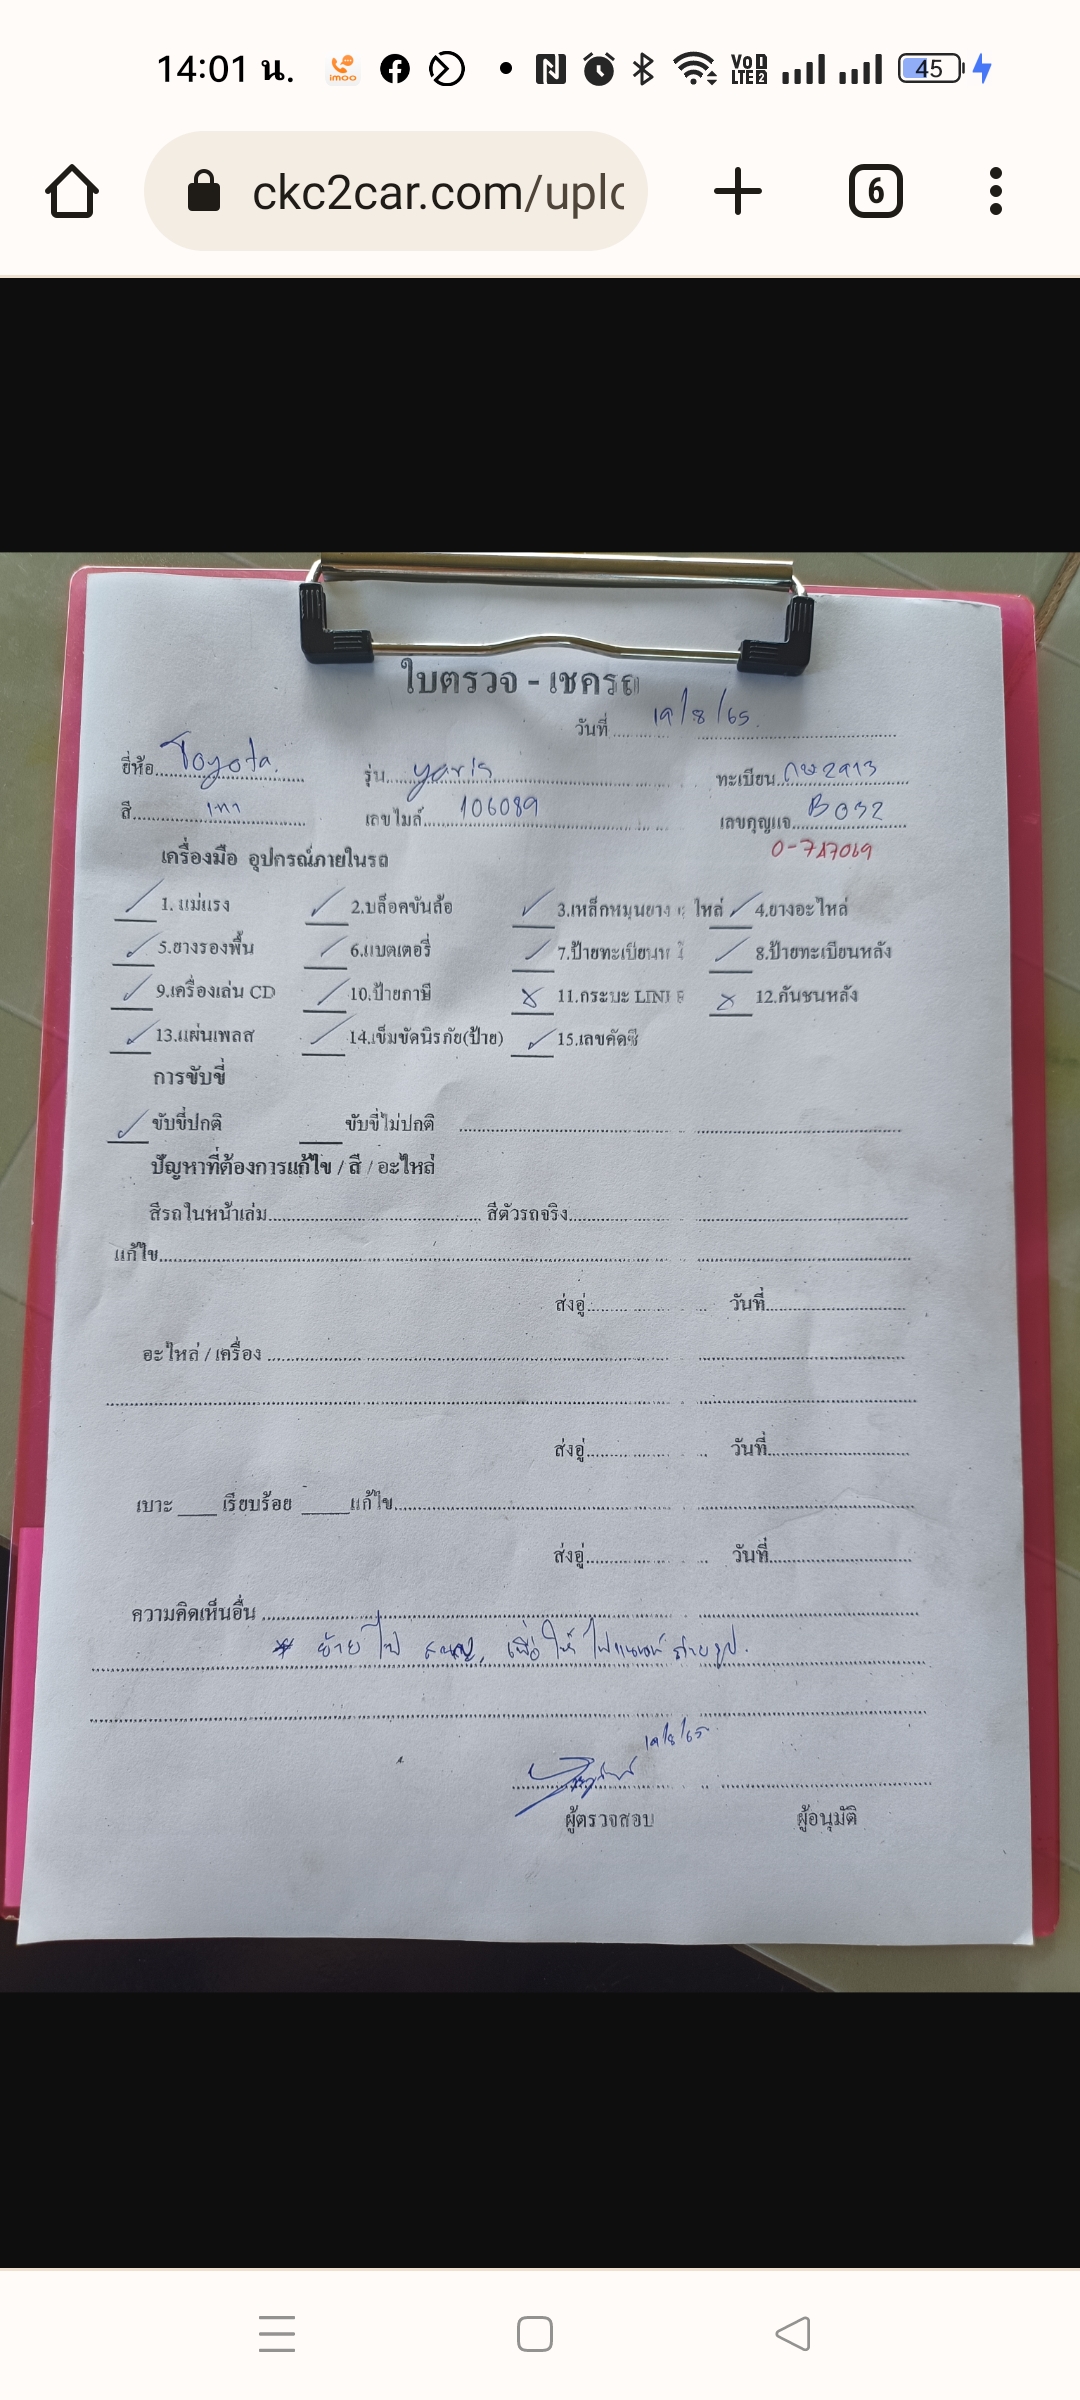 14:01 น. imoo VoLTE 45
ckc2car.com/uplo 6
ใบตรวจ - เชครถ
วันที่ 19/8/65
ยี่ห้อ Toyota รุ่น yaris ทะเบียน กษ2913
สี เทา เลขไมล์ 106089 เลขกุญแจ B032
เครื่องมือ อุปกรณ์ภายในรถ
1. แม่แรง 2.บล็อคขันล้อ 3.เหล็กหมุนยาง ไหล่ 4.ยางอะไหล่
5.ยางรองพื้น 6.แบตเตอรี่ 7.ป้ายทะเบียน 8.ป้ายทะเบียนหลัง
9.เครื่องเล่น CD 10.ป้ายภาษี 11.กระบะ LINER 12.กันชนหลัง
13.แผ่นเพลส 14.เข็มขัดนิรภัย(ป้าย) 15.เลขคัดซี
การขับขี่
ขับขี่ปกติ ขับขี่ไม่ปกติ
ปัญหาที่ต้องการแก้ไข / สี / อะไหล่
สีรถในหน้าเล่ม สีตัวรถจริง
แก้ไข
ส่งอู่ วันที่
อะไหล่ / เครื่อง
ส่งอู่ วันที่
เบาะ เรียบร้อย แก้ไข
ส่งอู่ วันที่
ความคิดเห็นอื่น
* ย้ายไป เพื่อให้ไฟแนนซ์ถ่ายรูป.
19/8/65
ผู้ตรวจสอบ ผู้อนุมัติ